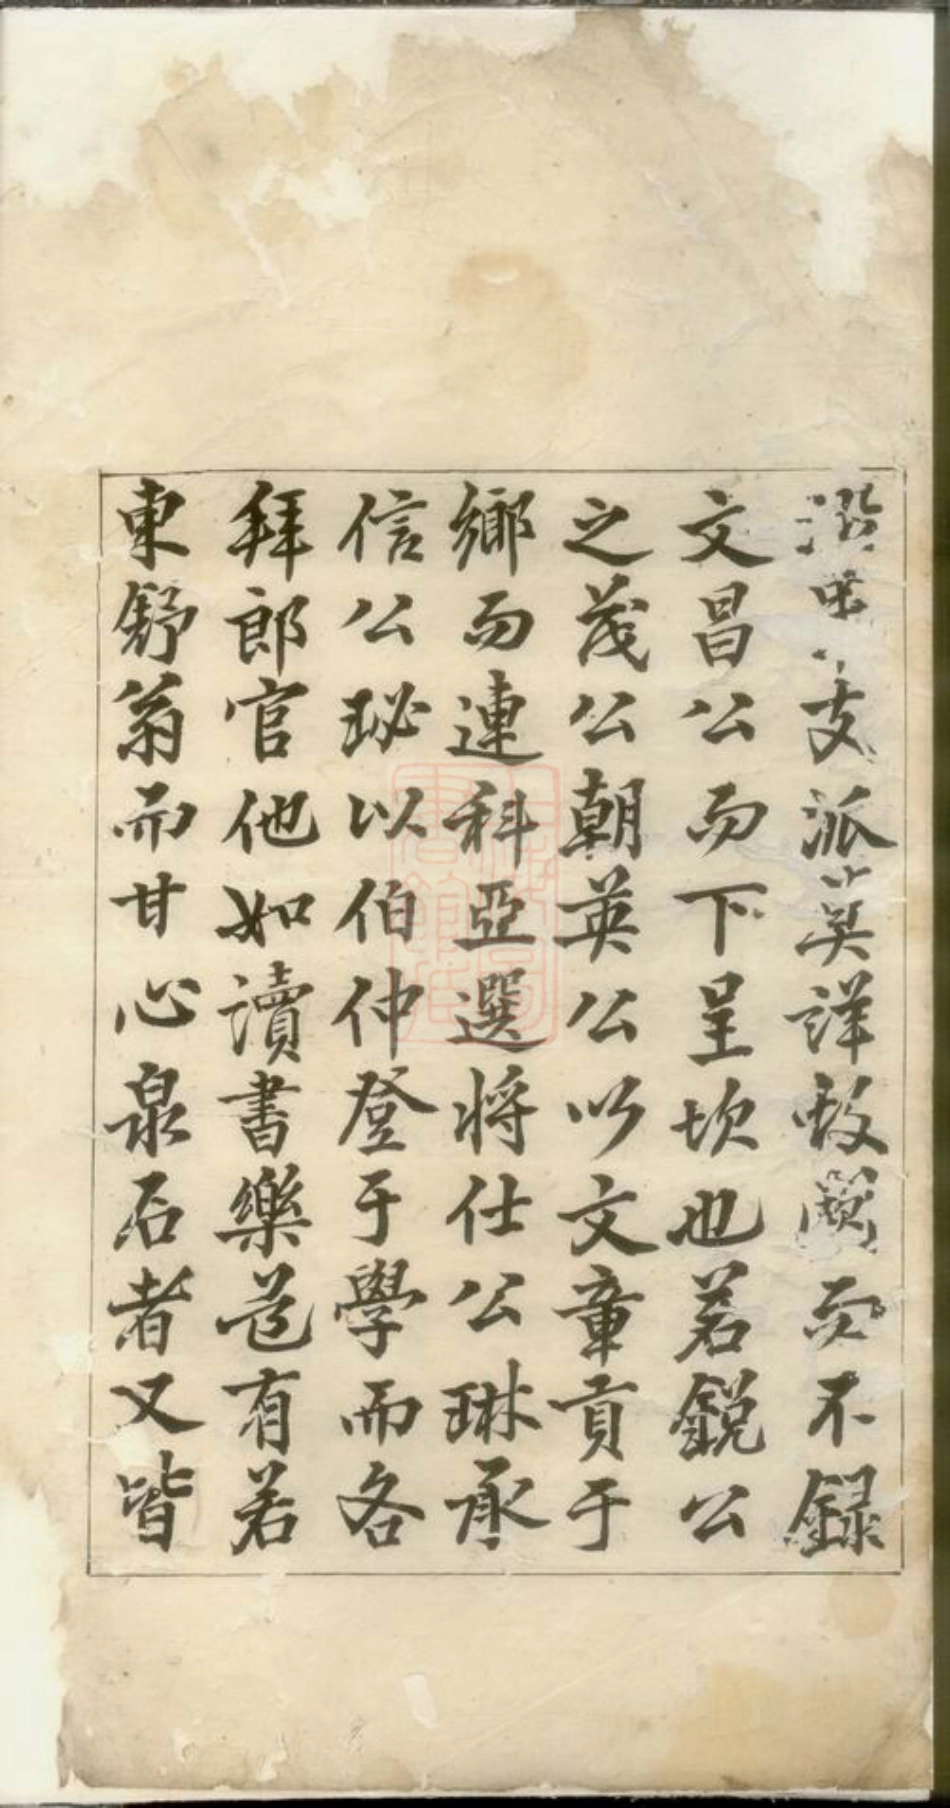 支派莫詳故闕而不錄
文昌公而下呈坎也若銳公
之茂公朝英公以文章貢于
鄉而連科亞選將仕公琳承
信公珌以伯仲登于學而各
拜郎官他如讀書樂道有若
東舒翁而甘心泉石者又皆